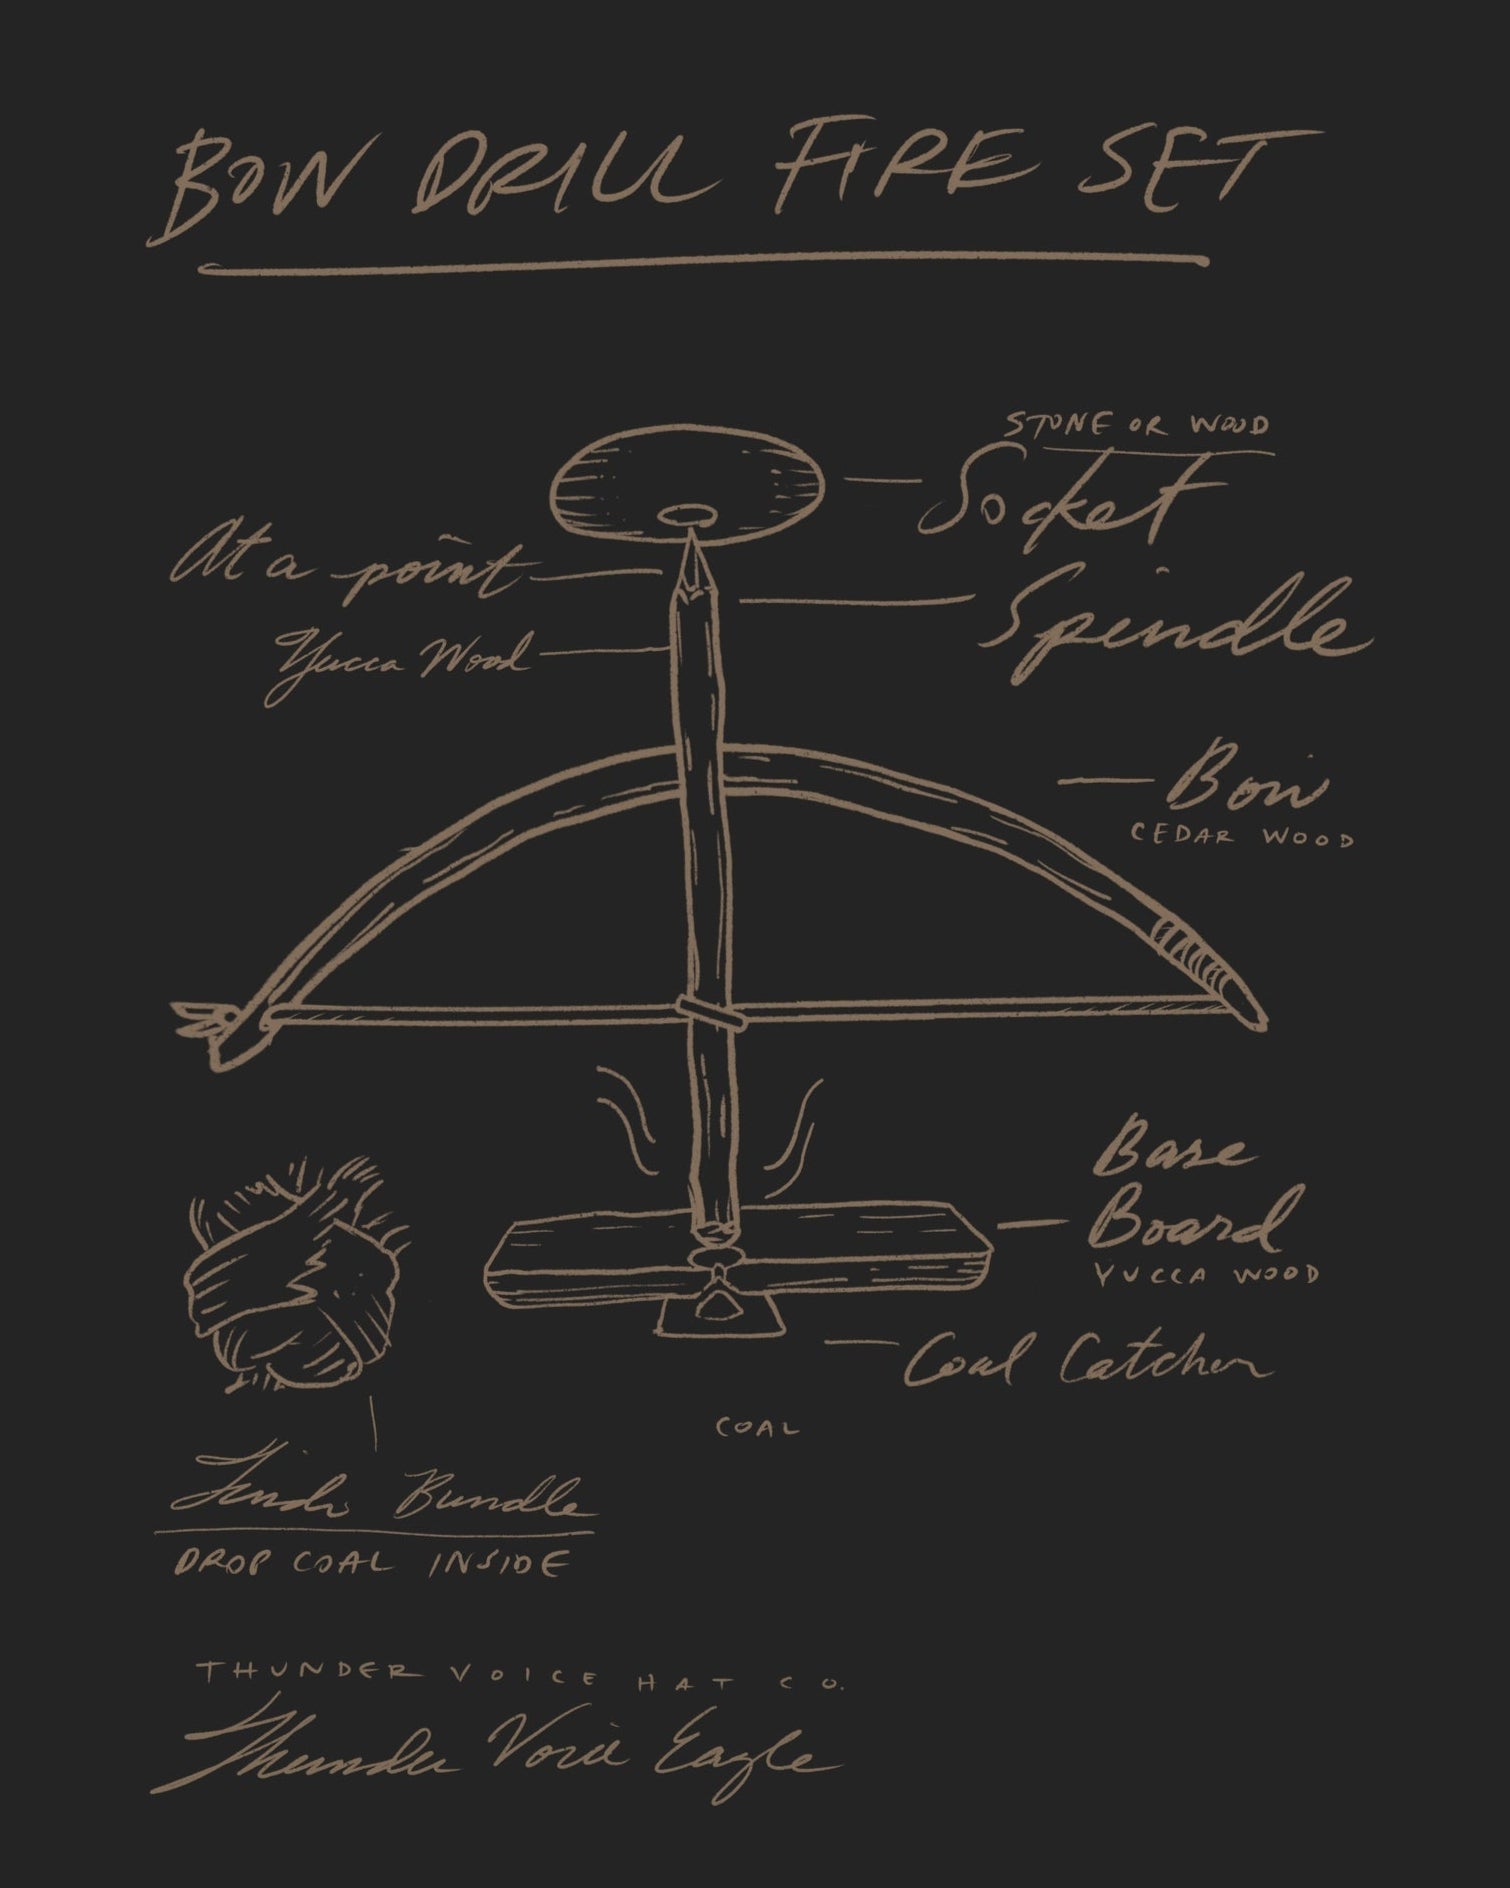 BOW DRILL FIRE SET
STONE OR WOOD
Socket
At a point
Spindle
Yucca Wood
Bow
CEDAR WOOD
Base
Board
YUCCA WOOD
Coal Catcher
COAL
Tinder Bundle
DROP COAL INSIDE
THUNDER VOICE HAT CO.
Thunder Voice Eagle